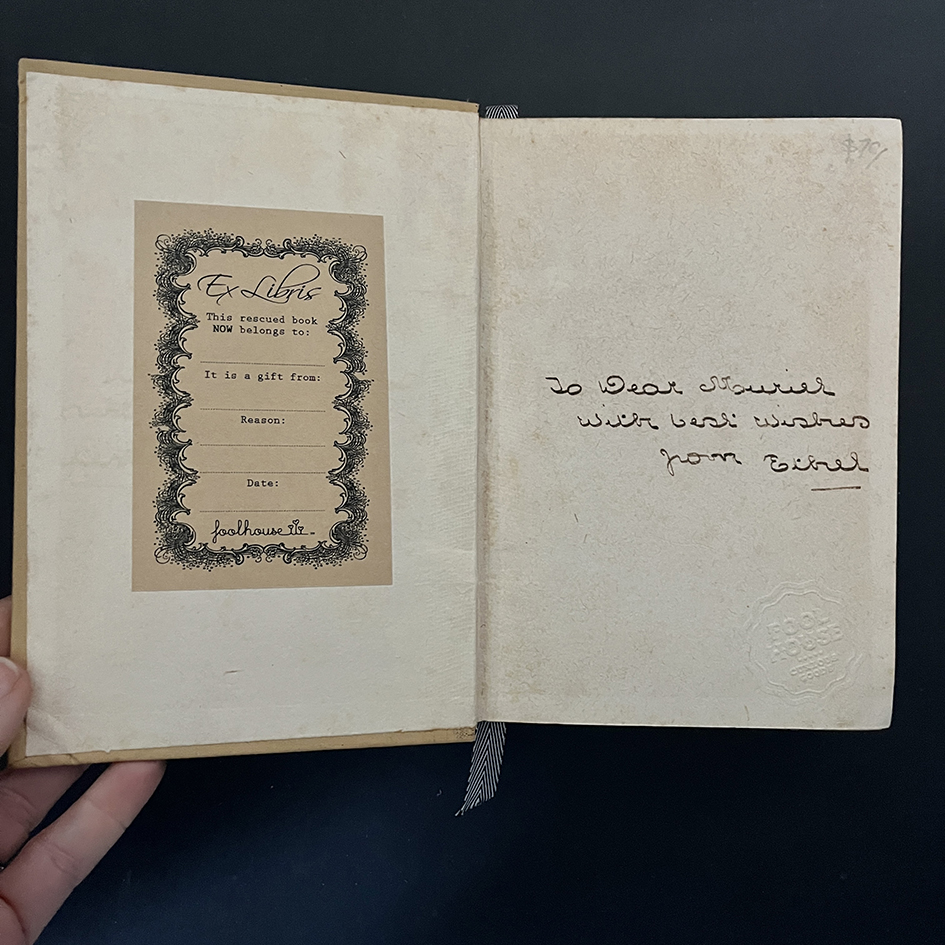 Ex Libris
This rescued book
NOW belongs to:
It is a gift from:
Reason:
Date:
foolhouse
To Dear Muriel
with best wishes
from Ethel
FOOL
HOUSE